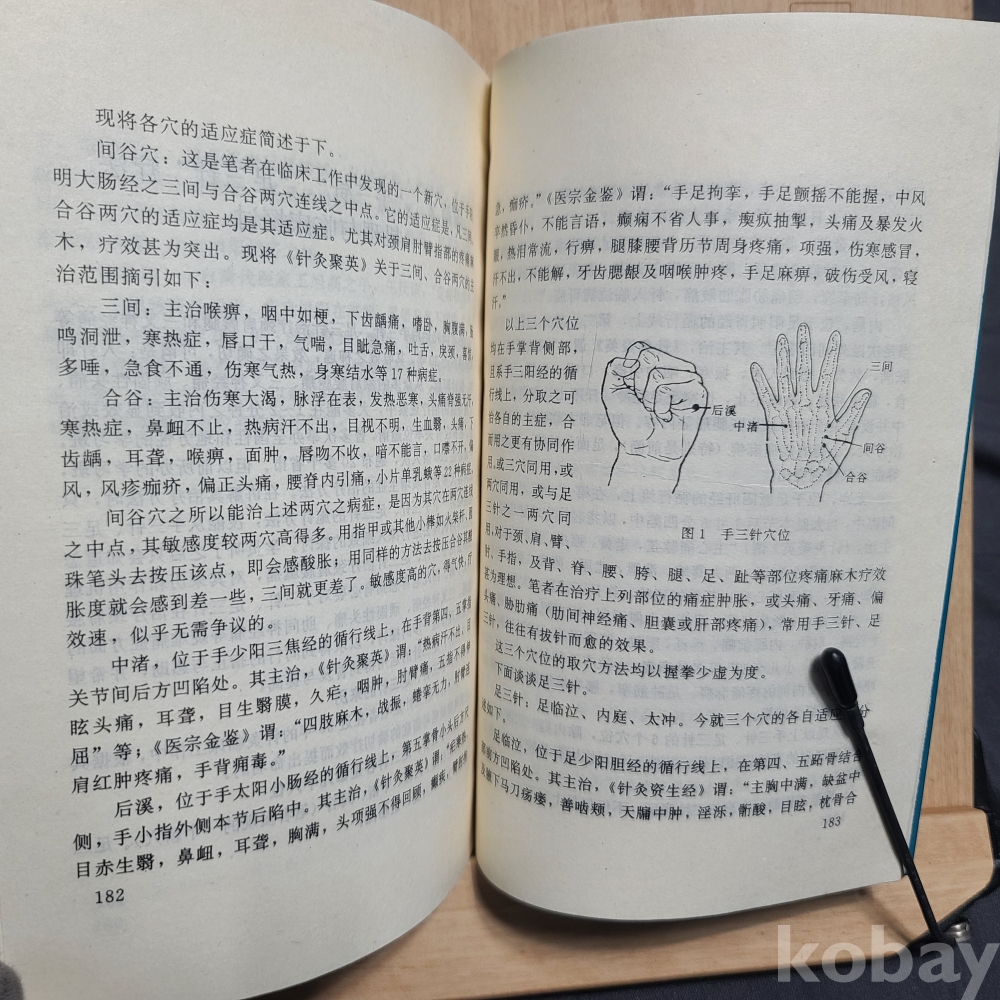 现将各穴的适应症简述于下。
间谷穴：这是笔者在临床工作中发现的一个新穴，位于手阳
明大肠经之三间与合谷两穴连线之中点。它的适应症是，凡三间、
合谷两穴的适应症均是其适应症。尤其对颈肩肘臂指部的疼痛麻
木，疗效甚为突出。现将《针灸聚英》关于三间、合谷两穴的主
治范围摘引如下：
三间：主治喉痹，咽中如梗，下齿龋痛，嗜卧，胸腹满，肠
鸣洞泄，寒热症，唇口干，气喘，目眦急痛，吐舌，戾颈，喜惊，
多唾，急食不通，伤寒气热，身寒结水等17种病症。
合谷：主治伤寒大渴，脉浮在表，发热恶寒，头痛脊强无汗，
寒热症，鼻衄不止，热病汗不出，目视不明，生血翳，头痛，下
齿龋，耳聋，喉痹，面肿，唇吻不收，喑不能言，口噤不开，偏
风，风疹痂疥，偏正头痛，腰脊内引痛，小片单乳蛾等22种病症。
间谷穴之所以能治上述两穴之病症，是因为其穴在两穴连线
之中点，其敏感度较两穴高得多。用指甲或其他小棒如火柴杆、圆
珠笔头去按压该点，即会感酸胀，用同样的方法去按压合谷其酸
胀度就会感到差一些，三间就更差了。敏感度高的穴，得气快，疗
效速，似乎无需争议的。
中渚，位于手少阳三焦经的循行线上，在手背第四、五掌指
关节间后方凹陷处。其主治，《针灸聚英》谓：“热病汗不出，目
眩头痛，耳聋，目生翳膜，久疟，咽肿，肘臂痛，五指不得伸
屈”等；《医宗金鉴》谓：“四肢麻木，战振，蜷挛无力，肘臂连
肩红肿疼痛，手背痈毒。”
后溪，位于手太阳小肠经的循行线上，第五掌骨小头后方尺
侧，手小指外侧本节后陷中。其主治，《针灸聚英》谓：“疟寒热，
目赤生翳，鼻衄，耳聋，胸满，头项强不得回顾，癫疾，臂肘挛
182
急，痂疥。”《医宗金鉴》谓：“手足拘挛，手足颤摇不能握，中风
卒然昏仆，不能言语，癫痫不省人事，瘈疭抽掣，头痛及暴发火
眼，热泪常流，行痹，腿膝腰背历节周身疼痛，项强，伤寒感冒，
汗不出，不能解，牙齿腮龈及咽喉肿疼，手足麻痹，破伤受风，寝
汗。”
以上三个穴位
均在手掌背侧部，
且系手三阳经的循
行线上，分取之可
治各自的主症，合
而用之更有协同作
用，或三穴同用，或
两穴同用，或与足
三针之一两穴同
用，对于颈、肩、臂、
肘、手指，及背、脊、腰、胯、腿、足、趾等部位疼痛麻木疗效
甚为理想。笔者在治疗上列部位的痛症肿胀，或头痛、牙痛、偏
头痛、胁肋痛（肋间神经痛、胆囊或肝部疼痛），常用手三针、足
三针，往往有拔针而愈的效果。
后溪
中渚
三间
间谷
合谷
图1 手三针穴位
这三个穴位的取穴方法均以握拳少虚为度。
下面谈谈足三针。
足三针：足临泣、内庭、太冲。今就三个穴的各自适应 分
述如下。
足临泣，位于足少阳胆经的循行线上，在第四、五跖骨结合
部前方凹陷处。其主治，《针灸资生经》谓：“主胸中满，缺盆中
及腋下马刀疡瘘，善啮颊，天牖中肿，淫泺，䯒酸，目眩，枕骨合
183
kobay